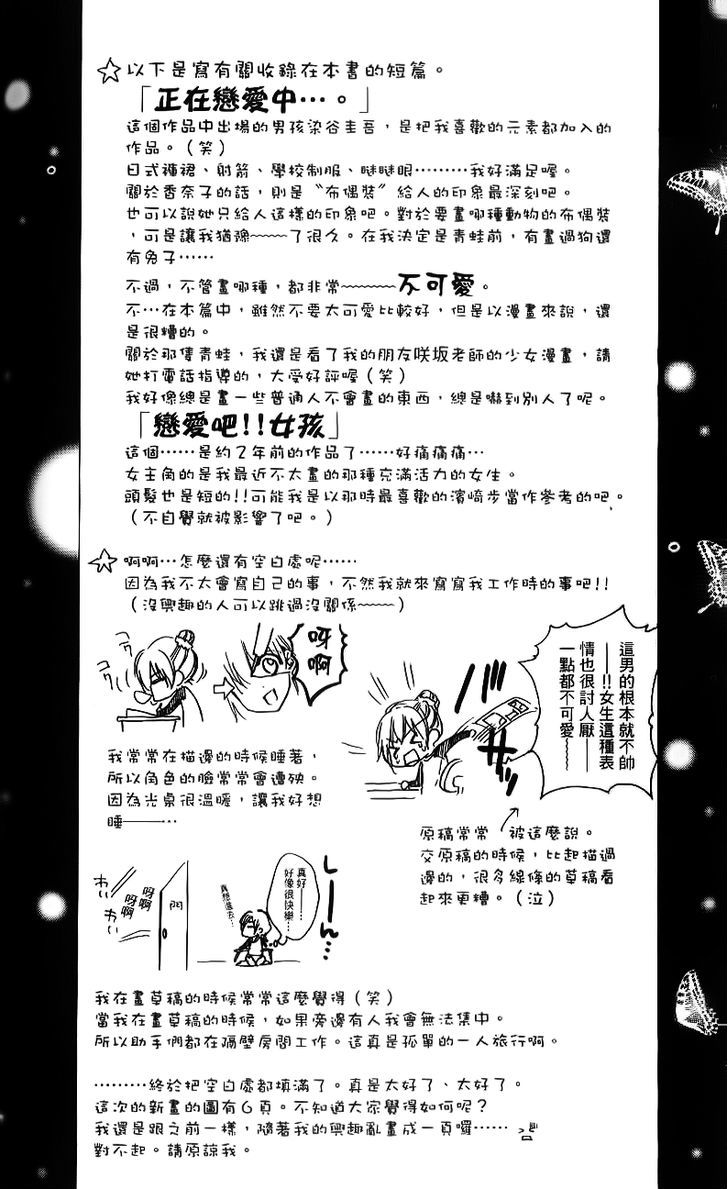 ☆以下是寫有關收錄在本書的短篇。
「正在戀愛中…。」
這個作品中出場的男孩染谷圭吾，是把我喜歡的元素都加入的
作品。（笑）
日式褲裙、射箭、學校制服、瞇瞇眼………我好滿足喔。
關於香奈子的話，則是〝布偶裝〞給人的印象最深刻吧。
也可以說她只給人這樣的印象吧。對於要畫哪種動物的布偶裝
，可是讓我猶豫~~~~了很久。在我決定是青蛙前，有畫過狗還
有兔子……
不過，不管畫哪種，都非常~~~~~不可愛。
不…在本篇中，雖然不要太可愛比較好，但是以漫畫來說，還
是很糟的。
關於那隻青蛙，我還是看了我的朋友咲坂老師的少女漫畫，請
她打電話指導的，大受好評喔（笑）
我好像總是畫一些普通人不會畫的東西，總是嚇到別人了呢。
「戀愛吧!!女孩」
這個……是約2年前的作品了……好痛痛痛…
女主角的是我最近不太畫的那種充滿活力的女生。
頭髮也是短的!!可能我是以那時最喜歡的濱崎步當作參考的吧。
（不自覺就被影響了吧。）
☆啊啊…怎麼還有空白處呢……
因為我不太會寫自己的事，不然我就來寫寫我工作時的事吧!!
（沒興趣的人可以跳過沒關係~~~~）
呀啊
這男的根本就不帥
——!!女生這種表
情也很討人厭——
一點都不可愛~~~
我常常在描邊的時候睡著，
所以角色的臉常常會遭殃。
因為光桌很溫暖，讓我好想
睡———…
原稿常常被這麼說。
交原稿的時候，比起描過
邊的，很多線條的草稿看
起來更糟。（泣）
わい
わい
呀啊
呀啊
門
真想進去…
真好——
好像很快樂…
しーん…
我在畫草稿的時候常常這麼覺得（笑）
當我在畫草稿的時候，如果旁邊有人我會無法集中。
所以助手們都在隔壁房間工作。這真是孤單的一人旅行啊。
………終於把空白處都填滿了。真是太好了、太好了。
這次的新畫的圖有6頁。不知道大家覺得如何呢？
我還是跟之前一樣，隨著我的興趣亂畫成一頁囉……
對不起。請原諒我。